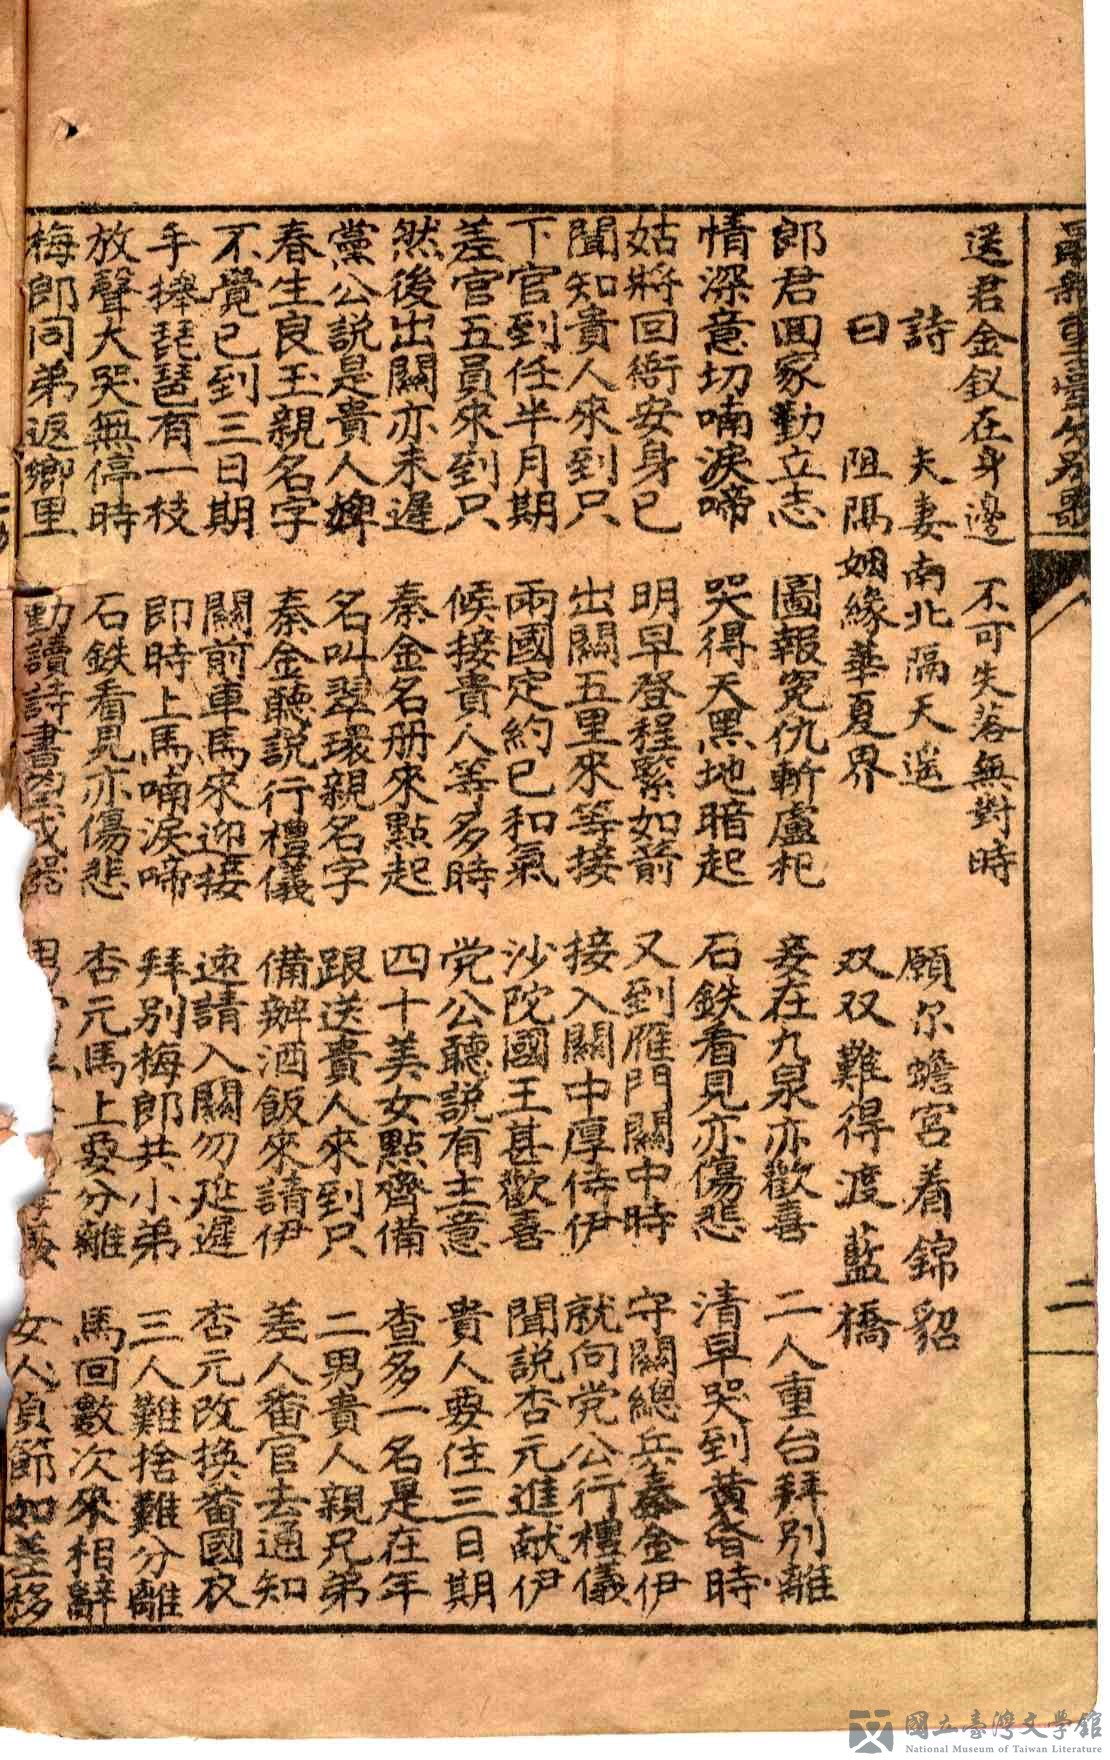 重臺分別歌
二
送君金釵在身邊 不可失落無對時
詩曰
夫妻南北隔天遥 願尔蟾宮着錦貂
阻隔姻緣華夏界 双双難得渡藍橋
郎君回家勤立志 圖報冤仇斬盧杞 妾在九泉亦歡喜 二人重台拜別離
情深意切喃淚啼 哭得天黑地暗起 石鉄看見亦傷悲 清早哭到黃昏時
姑將回衙安身已 明早登程緊如箭 又到雁門關中時 守關總兵秦金伊
聞知貴人來到只 出關五里來等接 接入關中厚侍伊 就向党公行禮儀
下官到任半月期 兩國定約已和氣 沙陀國王甚歡喜 聞說杏元進献伊
差官五員來到只 候接貴人等多時 党公聽說有主意 貴人要住三日期
然後出關亦未遲 秦金名册來點起 四十美女點齊備 查多一名是在年
黨公說是貴人婢 名叫翠環親名字 跟送貴人來到只 二男貴人親兄弟
春生良玉親名字 秦金聽說行禮儀 備辦酒飯來請伊 差人番官去通知
不覺已到三日期 關前車馬來迎接 速請入關勿延遲 杏元改換番國衣
手捧琵琶有一枝 即時上馬喃淚啼 拜別梅郎共小弟 三人難捨難分離
放聲大哭無停時 石鉄看見亦傷悲 杏元馬上要分離 馬回數次來相辭
梅郎同弟返鄉里 勤讀詩書 女人貞節如差移
國立臺灣文學館
National Museum of Taiwan Literature